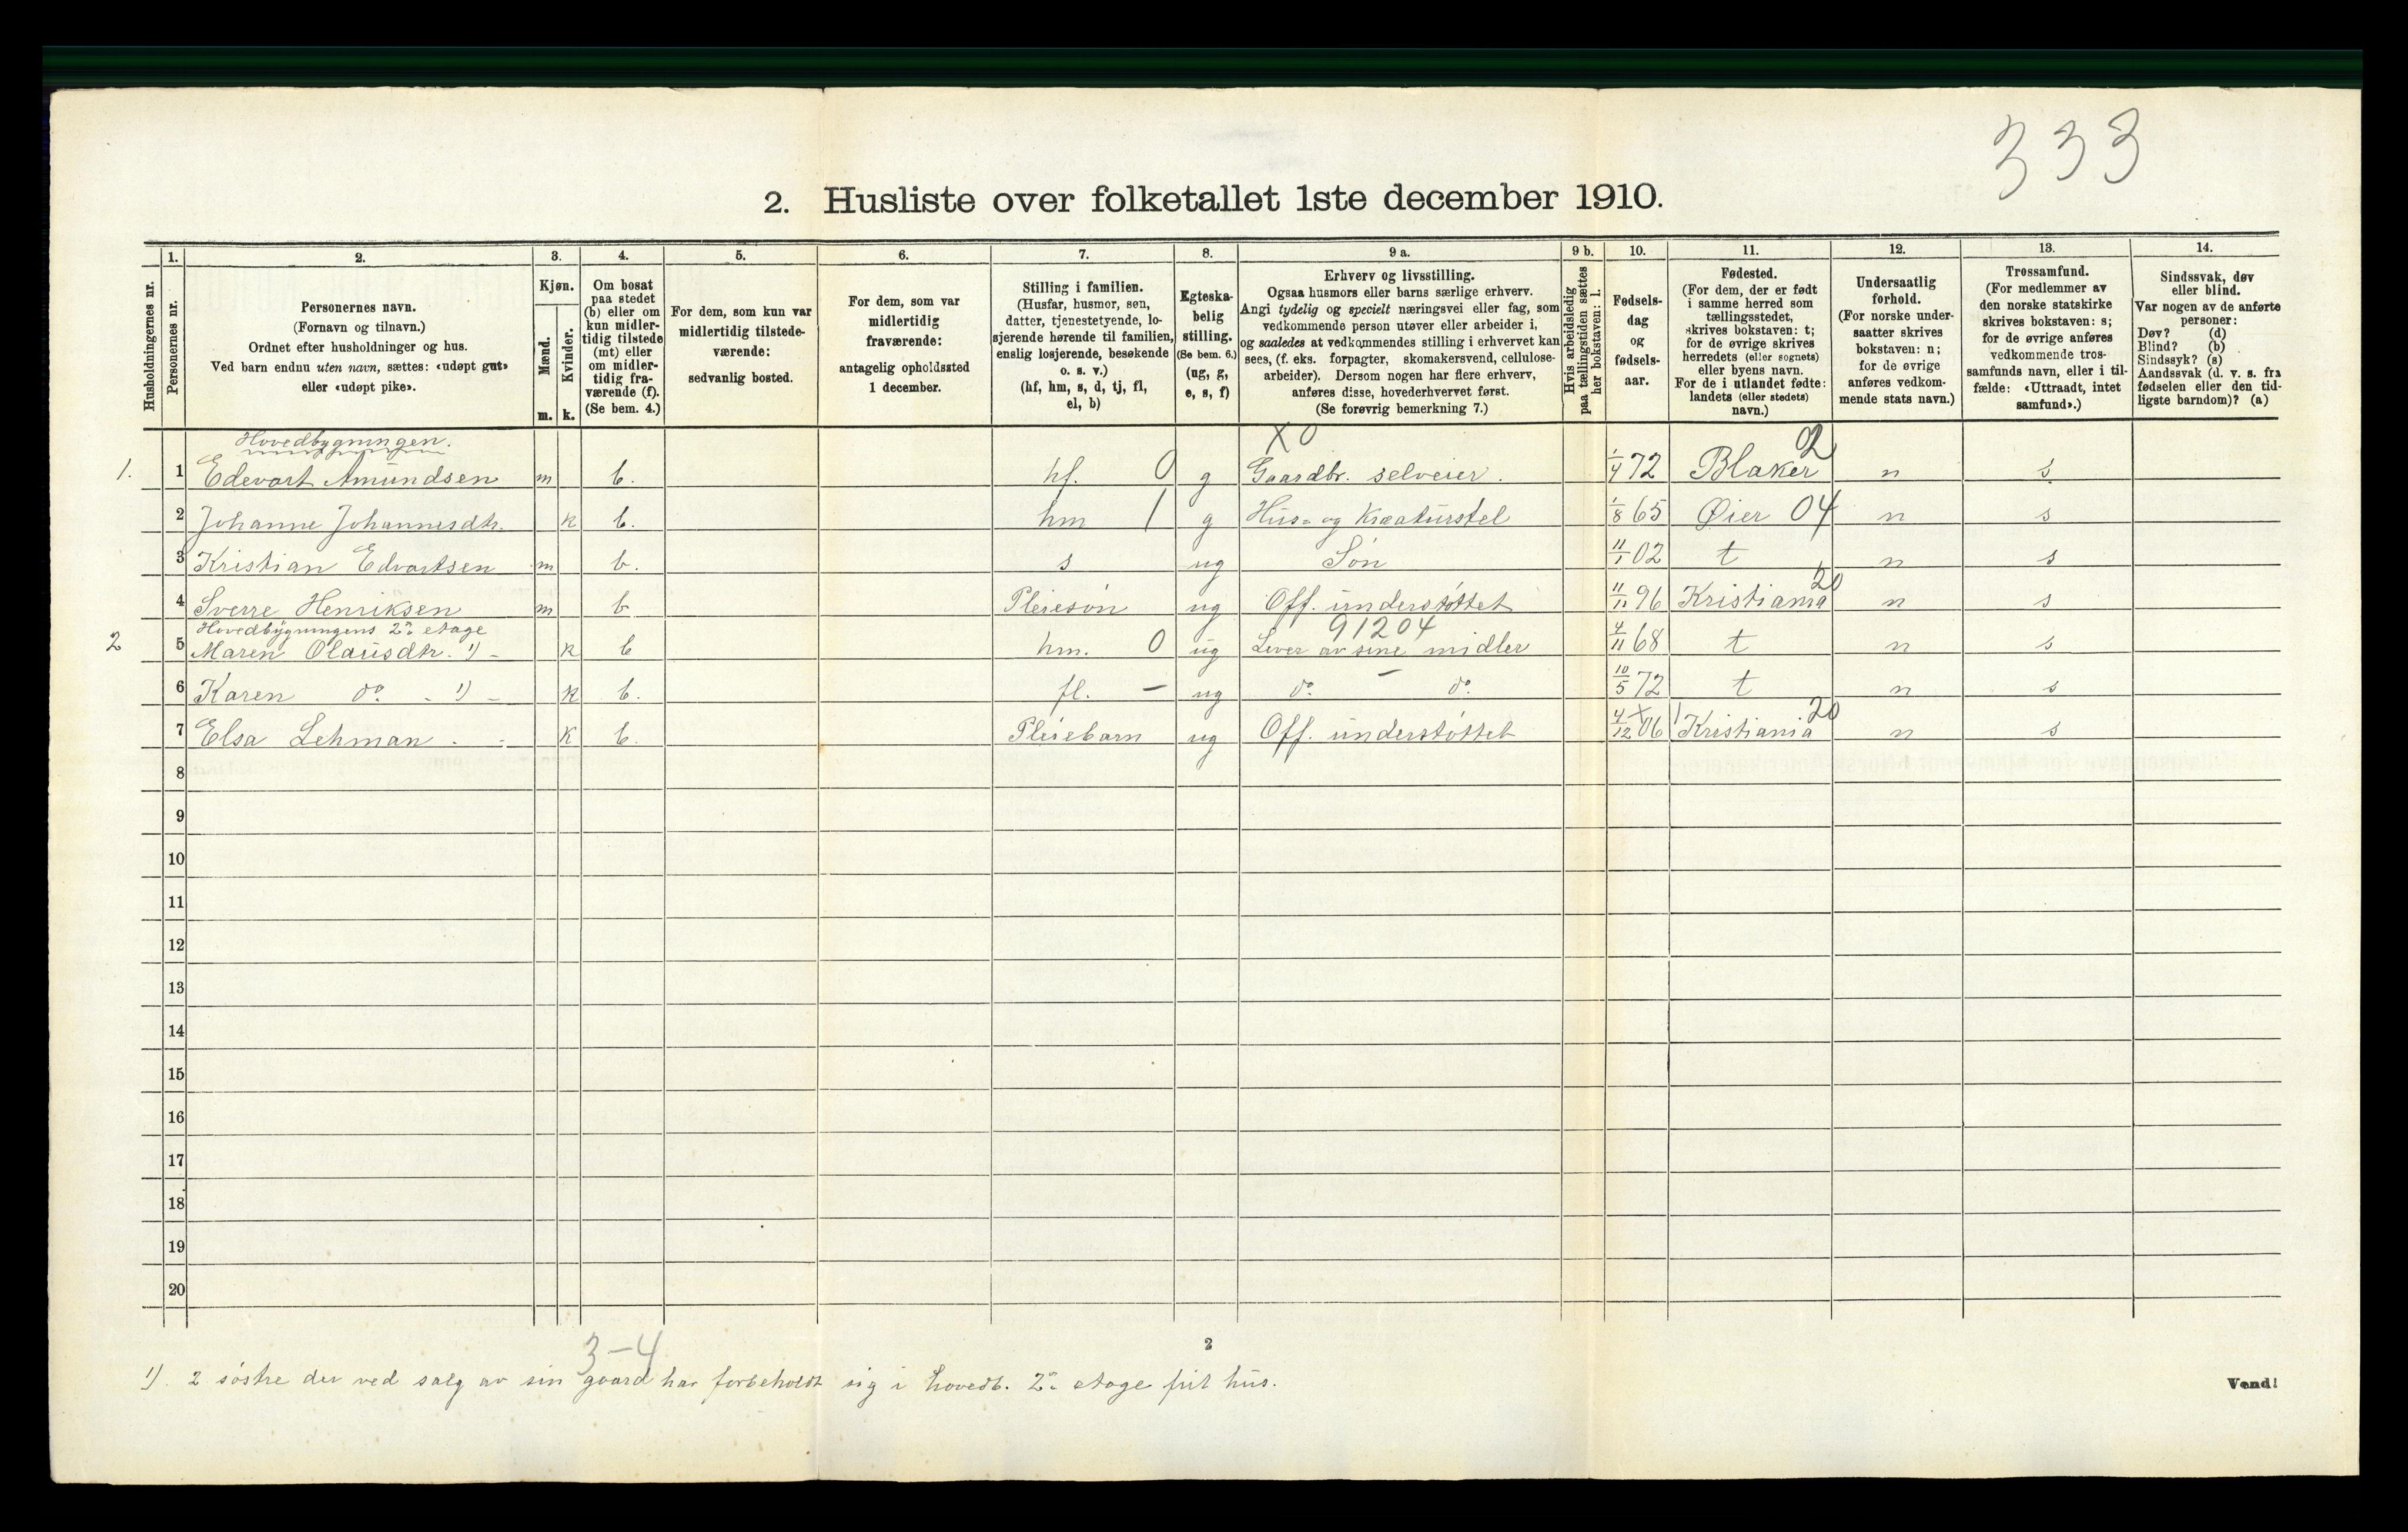 333
2. Husliste over folketallet 1ste december 1910.
1. 2. 3. 4. 5. 6. 7. 8. 9 a. 9 b. 10. 11. 12. 13. 14.
Husholdningernes nr.
Personernes nr.
Personernes navn.
(Fornavn og tilnavn.)
Ordnet efter husholdninger og hus.
Ved barn endnu uten navn, sættes: «udøpt gut»
eller «udøpt pike».
Kjøn.
Mænd.
m.
Kvinder.
k.
Om bosat
paa stedet
(b) eller om
kun midler-
tidig tilstede
(mt) eller
om midler-
tidig fra-
værende (f).
(Se bem. 4.)
For dem, som kun var
midlertidig tilstede-
værende:
sedvanlig bosted.
For dem, som var
midlertidig
fraværende:
antagelig opholdssted
1 december.
Stilling i familien.
(Husfar, husmor, søn,
datter, tjenestetyende, lo-
sjerende hørende til familien,
enslig losjerende, besøkende
o. s. v.)
(hf, hm, s, d, tj, fl,
el, b)
Egteska-
belig
stilling.
(Se bem. 6.)
(ug, g,
e, s, f)
Erhverv og livsstilling.
Ogsaa husmors eller barns særlige erhverv.
Angi tydelig og specielt næringsvei eller fag, som
vedkommende person utøver eller arbeider i,
og saaledes at vedkommendes stilling i erhvervet kan
sees, (f. eks. forpagter, skomakersvend, cellulose-
arbeider). Dersom nogen har flere erhverv,
anføres disse, hovederhvervet først.
(Se forøvrig bemerkning 7.)
Hvis arbeidsledig
paa tællingstiden sættes
her bokstaven: l.
Fødsels-
dag
og
fødsels-
aar.
Fødested.
(For dem, der er født
i samme herred som
tællingsstedet,
skrives bokstaven: t;
for de øvrige skrives
herredets (eller sognets)
eller byens navn.
For de i utlandet fødte:
landets (eller stedets)
navn.)
Undersaatlig
forhold.
(For norske under-
saatter skrives
bokstaven: n;
for de øvrige
anføres vedkom-
mende stats navn.)
Trossamfund.
(For medlemmer av
den norske statskirke
skrives bokstaven: s;
for de øvrige anføres
vedkommende tros-
samfunds navn, eller i til-
fælde: «Uttraadt, intet
samfund».)
Sindssvak, døv
eller blind.
Var nogen av de anførte
personer:
Døv? (d)
Blind? (b)
Sindssyk? (s)
Aandssvak (d. v. s. fra
fødselen eller den tid-
ligste barndom)? (a)
Hovedbygningen. X 0 02
1. 1 Edevart Amundsen m b. hf. 0 g Gaardbr. selveier. 1/4 72 Blaker n s
2 Johanne Johannesdtr. k b. hm 1 g Hus- og Kreaturstel 1/8 65 Øier 04 n s
3 Kristian Edvartsen m b. s ug Søn 11/1 02 t n s
4 Sverre Henriksen m b Pleiesøn ug Off. understøttet 11/11 96 Kristiania 20 n s
Hovedbygningens 2n etage 91204
2 5 Maren Olausdtr. 1) - k b hm. 0 ug Lever av sine midler 4/11 68 t n s
6 Karen do. - 1) - k b. fl. - ug do. do. 10/5 72 t n s
7 Elsa Lehman k b. Pleiebarn ug Off. understøttet 4/12 06 Kristiania 20 n s
8
9
10
11
12
13
14
15
16
17
18
19
20
2
3-4
1). 2 søstre der ved salg av sin gaard har forbeholdt sig i hovedb. 2n etage frit hus.
Vend!